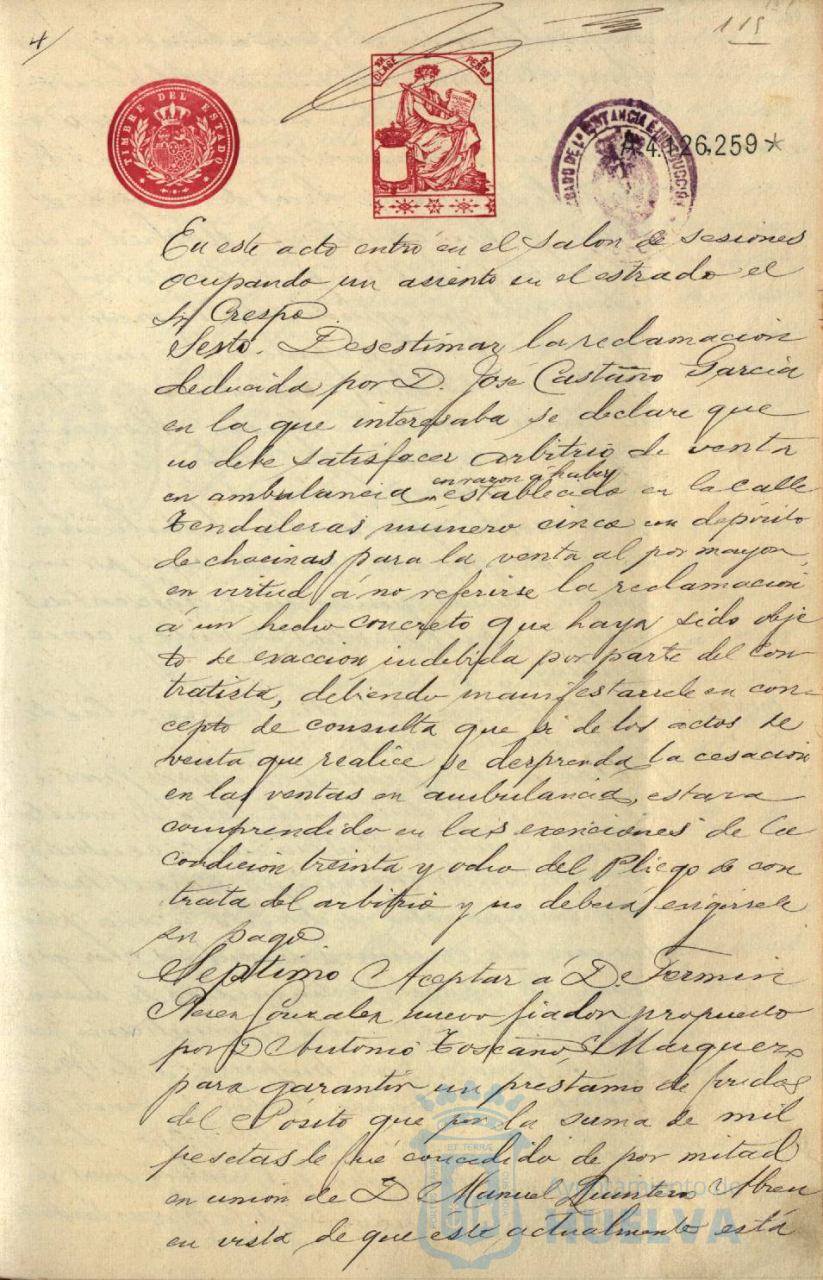 4/
115
TIMBRE DEL ESTADO
CLASE
PESETAS
JUZGADO DE 1ª INSTANCIA E INSTRUCCIÓN
26,259 *
En este acto entró en el salon de sesiones
ocupando un asiento en el estrado el
Sr Crespo.
Sesto. Desestimar la reclamacion
deducida por D. José Castaño Garcia
en la que interesaba se declare que
no debe satisfacer arbitrio de venta
en ambulancia en razon á haber establecido en la calle
Tendaleras número cinco un depósito
de chacinas para la venta al por mayor,
en virtud á no referirse la reclamacion
á un hecho concreto que haya sido obje
to de exaccion indebida por parte del con-
tratista, debiendo manifestarsele en con-
cepto de consulta que si de los actos de
venta que realice se desprenda la cesacion
en las ventas en ambulancia, estara
comprendido en las exenciones de la
condicion treinta y ocho del Pliego de con
trata del arbitrio y no deberá exigirsele
su pago
Septimo Aceptar á D. Fermin
Perez Gonzalez nuevo fiador propuesto
por D Antonio Toscano Marquez
para garantir un préstamo de fondos
del Pósito que por la suma de mil
pesetas le fué concedido de por mitad
en union de D Manuel Quintero Abreu
en vista de que este actualmente está
Ayuntamiento de
HUELVA